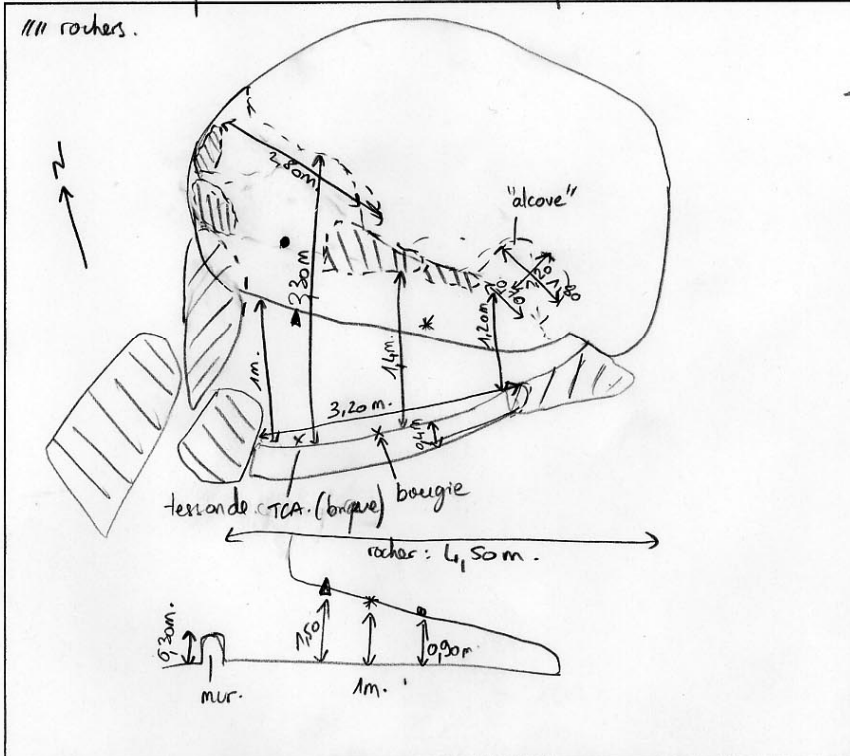 //// rochers.
N
2,80m
"alcove"
3,30m
1,20m
1m.
1,4m.
3,20m.
0,4m
bougie
tesson de TCA. (brique)
rocher : 4,50m.
0,30m.
1,50
0,90m
mur.
1m.